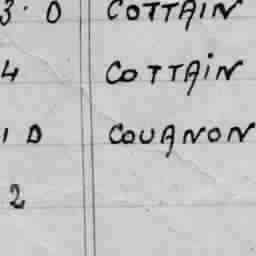 3. 0 COTTAIN
4 COTTAIN
1 D COUANON
2